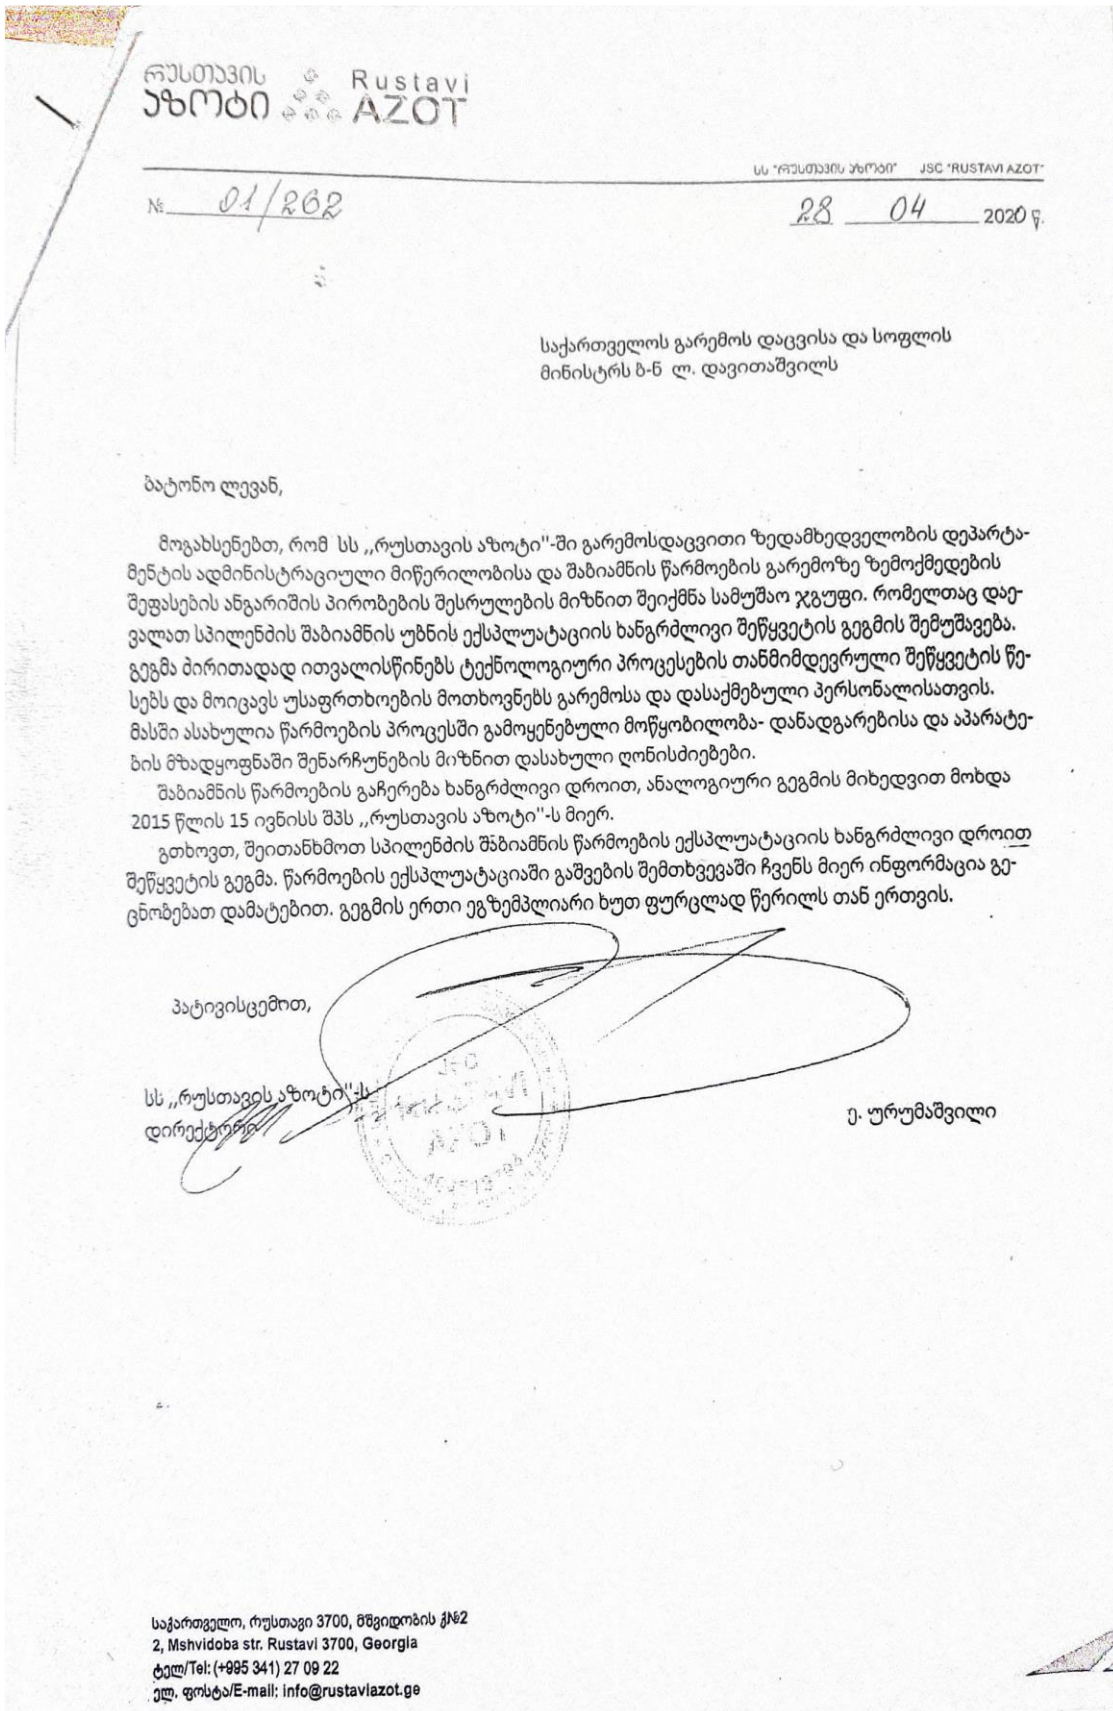 რუსთავის Rustavi
აზოტი AZOT
სს "რუსთავის აზოტი" JSC "RUSTAVI AZOT"
№ 01/262 28 04 2020 წ.
საქართველოს გარემოს დაცვისა და სოფლის
მინისტრს ბ-ნ ლ. დავითაშვილს
ბატონო ლევან,
მოგახსენებთ, რომ სს ,,რუსთავის აზოტი"-ში გარემოსდაცვითი ზედამხედველობის დეპარტა-
მენტის ადმინისტრაციული მიწერილობისა და შაბიამნის წარმოების გარემოზე ზემოქმედების
შეფასების ანგარიშის პირობების შესრულების მიზნით შეიქმნა სამუშაო ჯგუფი. რომელთაც დაე-
ვალათ სპილენძის შაბიამნის უბნის ექსპლუატაციის ხანგრძლივი შეწყვეტის გეგმის შემუშავება.
გეგმა ძირითადად ითვალისწინებს ტექნოლოგიური პროცესების თანმიმდევრული შეწყვეტის წე-
სებს და მოიცავს უსაფრთხოების მოთხოვნებს გარემოსა და დასაქმებული პერსონალისათვის.
მასში ასახულია წარმოების პროცესში გამოყენებული მოწყობილობა- დანადგარებისა და აპარატე-
ბის მზადყოფნაში შენარჩუნების მიზნით დასახული ღონისძიებები.
შაბიამნის წარმოების გაჩერება ხანგრძლივი დროით, ანალოგიური გეგმის მიხედვით მოხდა
2015 წლის 15 ივნისს შპს ,,რუსთავის აზოტი"-ს მიერ.
გთხოვთ, შეითანხმოთ სპილენძის შაბიამნის წარმოების ექსპლუატაციის ხანგრძლივი დროით
შეწყვეტის გეგმა. წარმოების ექსპლუატაციაში გაშვების შემთხვევაში ჩვენს მიერ ინფორმაცია გე-
ცნობებათ დამატებით. გეგმის ერთი ეგზემპლიარი ხუთ ფურცლად წერილს თან ერთვის.
პატივისცემოთ,
JSC
სს ,,რუსთავის აზოტი"-ს
AZOT
დირექტორი ე. ურუმაშვილი
საქართველო, რუსთავი 3700, მშვიდობის ქ№2
2, Mshvidoba str. Rustavi 3700, Georgia
ტელ/Tel: (+995 341) 27 09 22
ელ. ფოსტა/E-mail: info@rustaviazot.ge